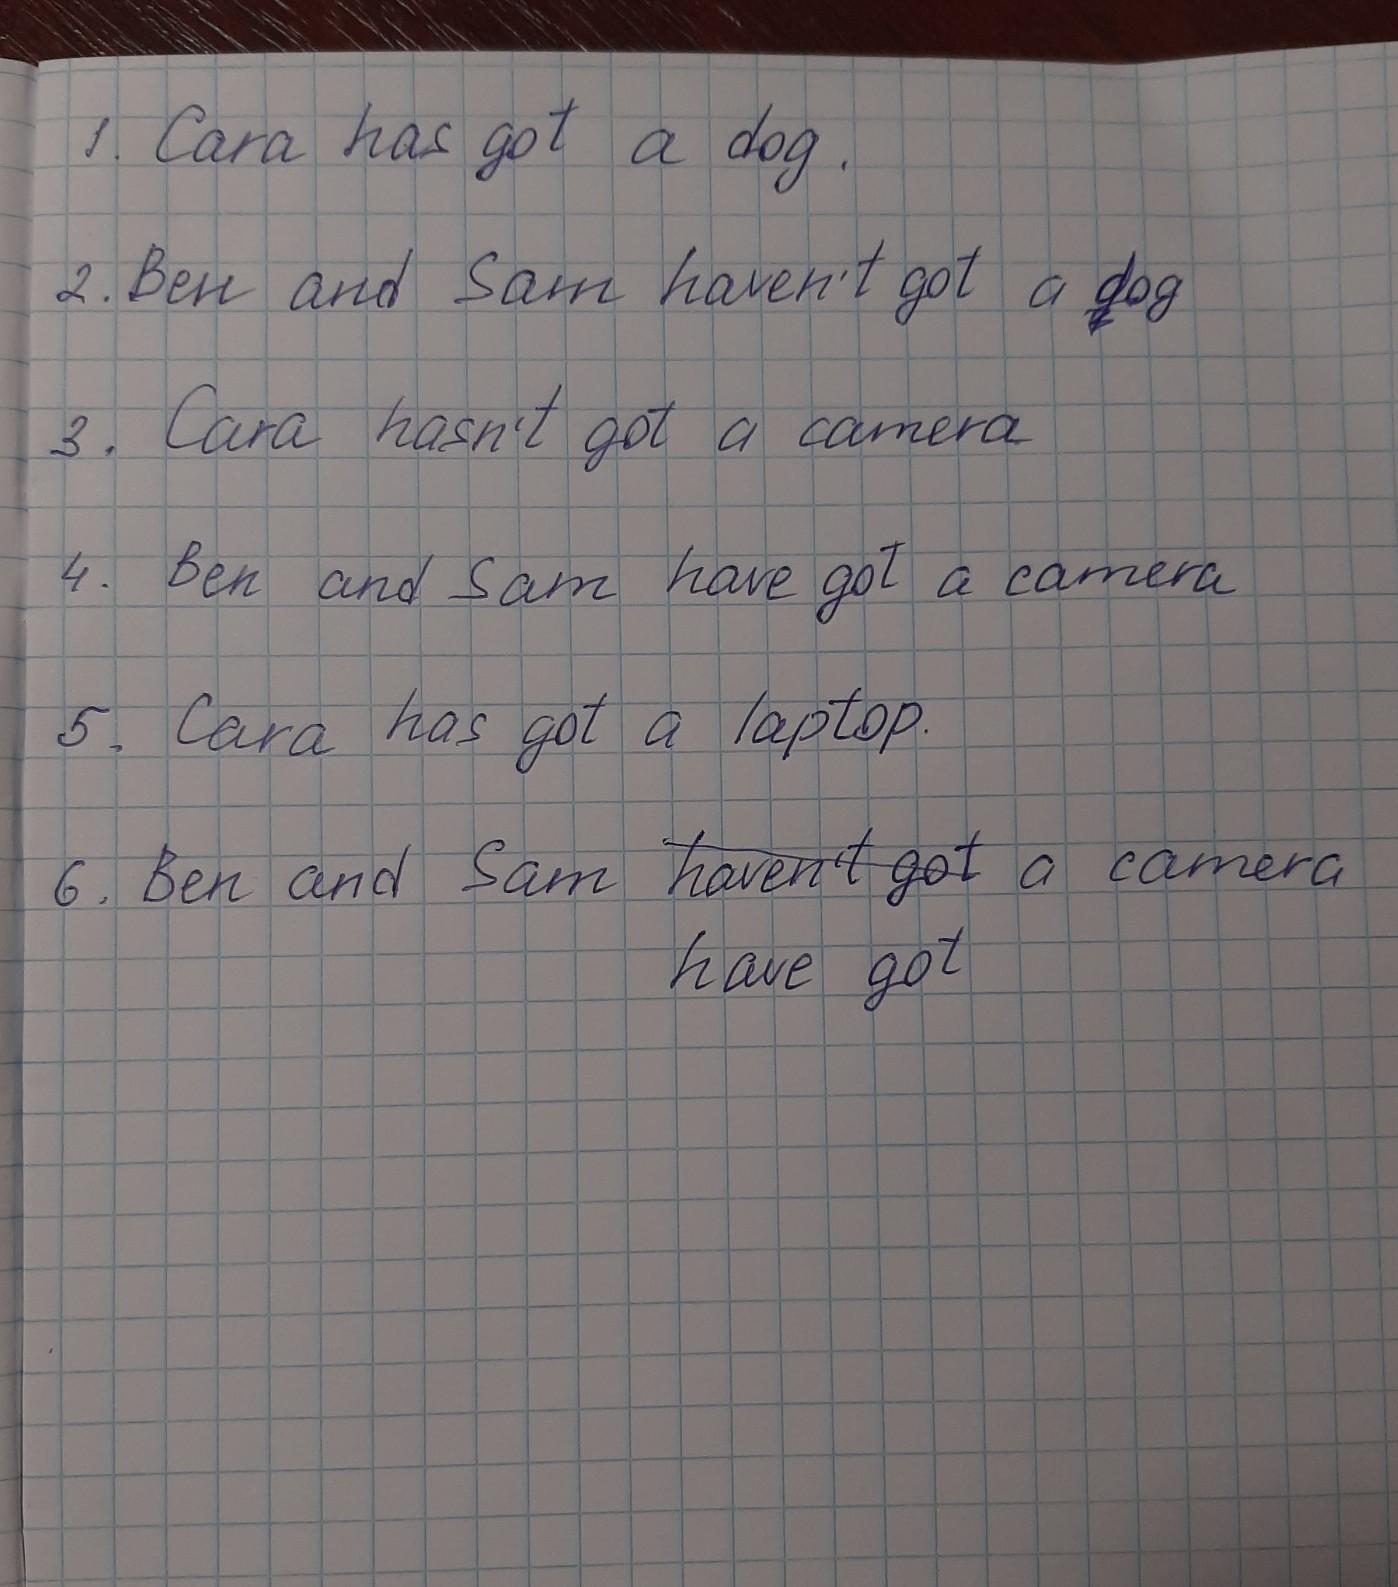 1. Cara has got a dog.
2. Ben and Sam haven't got a dog
3. Cara hasn't got a camera
4. Ben and Sam have got a camera
5. Cara has got a laptop.
6. Ben and Sam haven't got a camera
have got